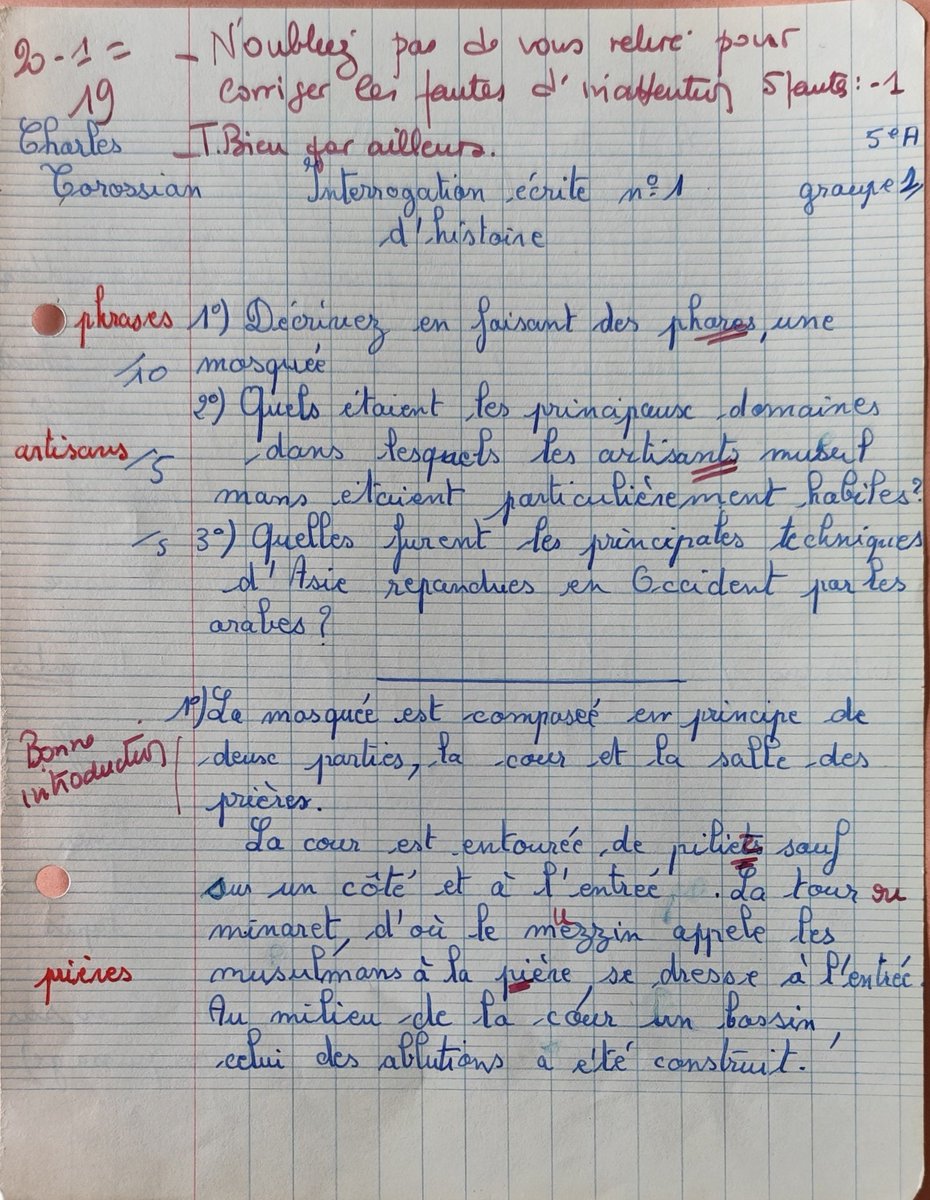 20-1= - N'oubliez pas de vous relire pour
19 corriger les fautes d'inattention 5 fautes: -1
Charles - T. Bien par ailleurs. 5e A
Torossian Interrogation écrite n°1 groupe 1
d'histoire
phrases 1°) Décrivez en faisant des phares, une
/10 mosquée
2°) Quels étaient les principaux domaines
artisans /5 dans lesquels les artisants musul
mans étaient particulièrement habiles?
/5 3°) Quelles furent les principales techniques
d'Asie repandues en Occident par les
arabes?
1°) La mosquée est composeé en principe de
Bonne introduction deux parties, la cour et la salle des
prières.
La cour est entourée de piliets sauf
sur un côté et à l'entreé. La tour ou
minaret, d'où le muezzin appele les
prières musulmans à la pière, se dresse à l'entreé.
Au milieu de la cour un bassin,
celui des ablutions à été construit.